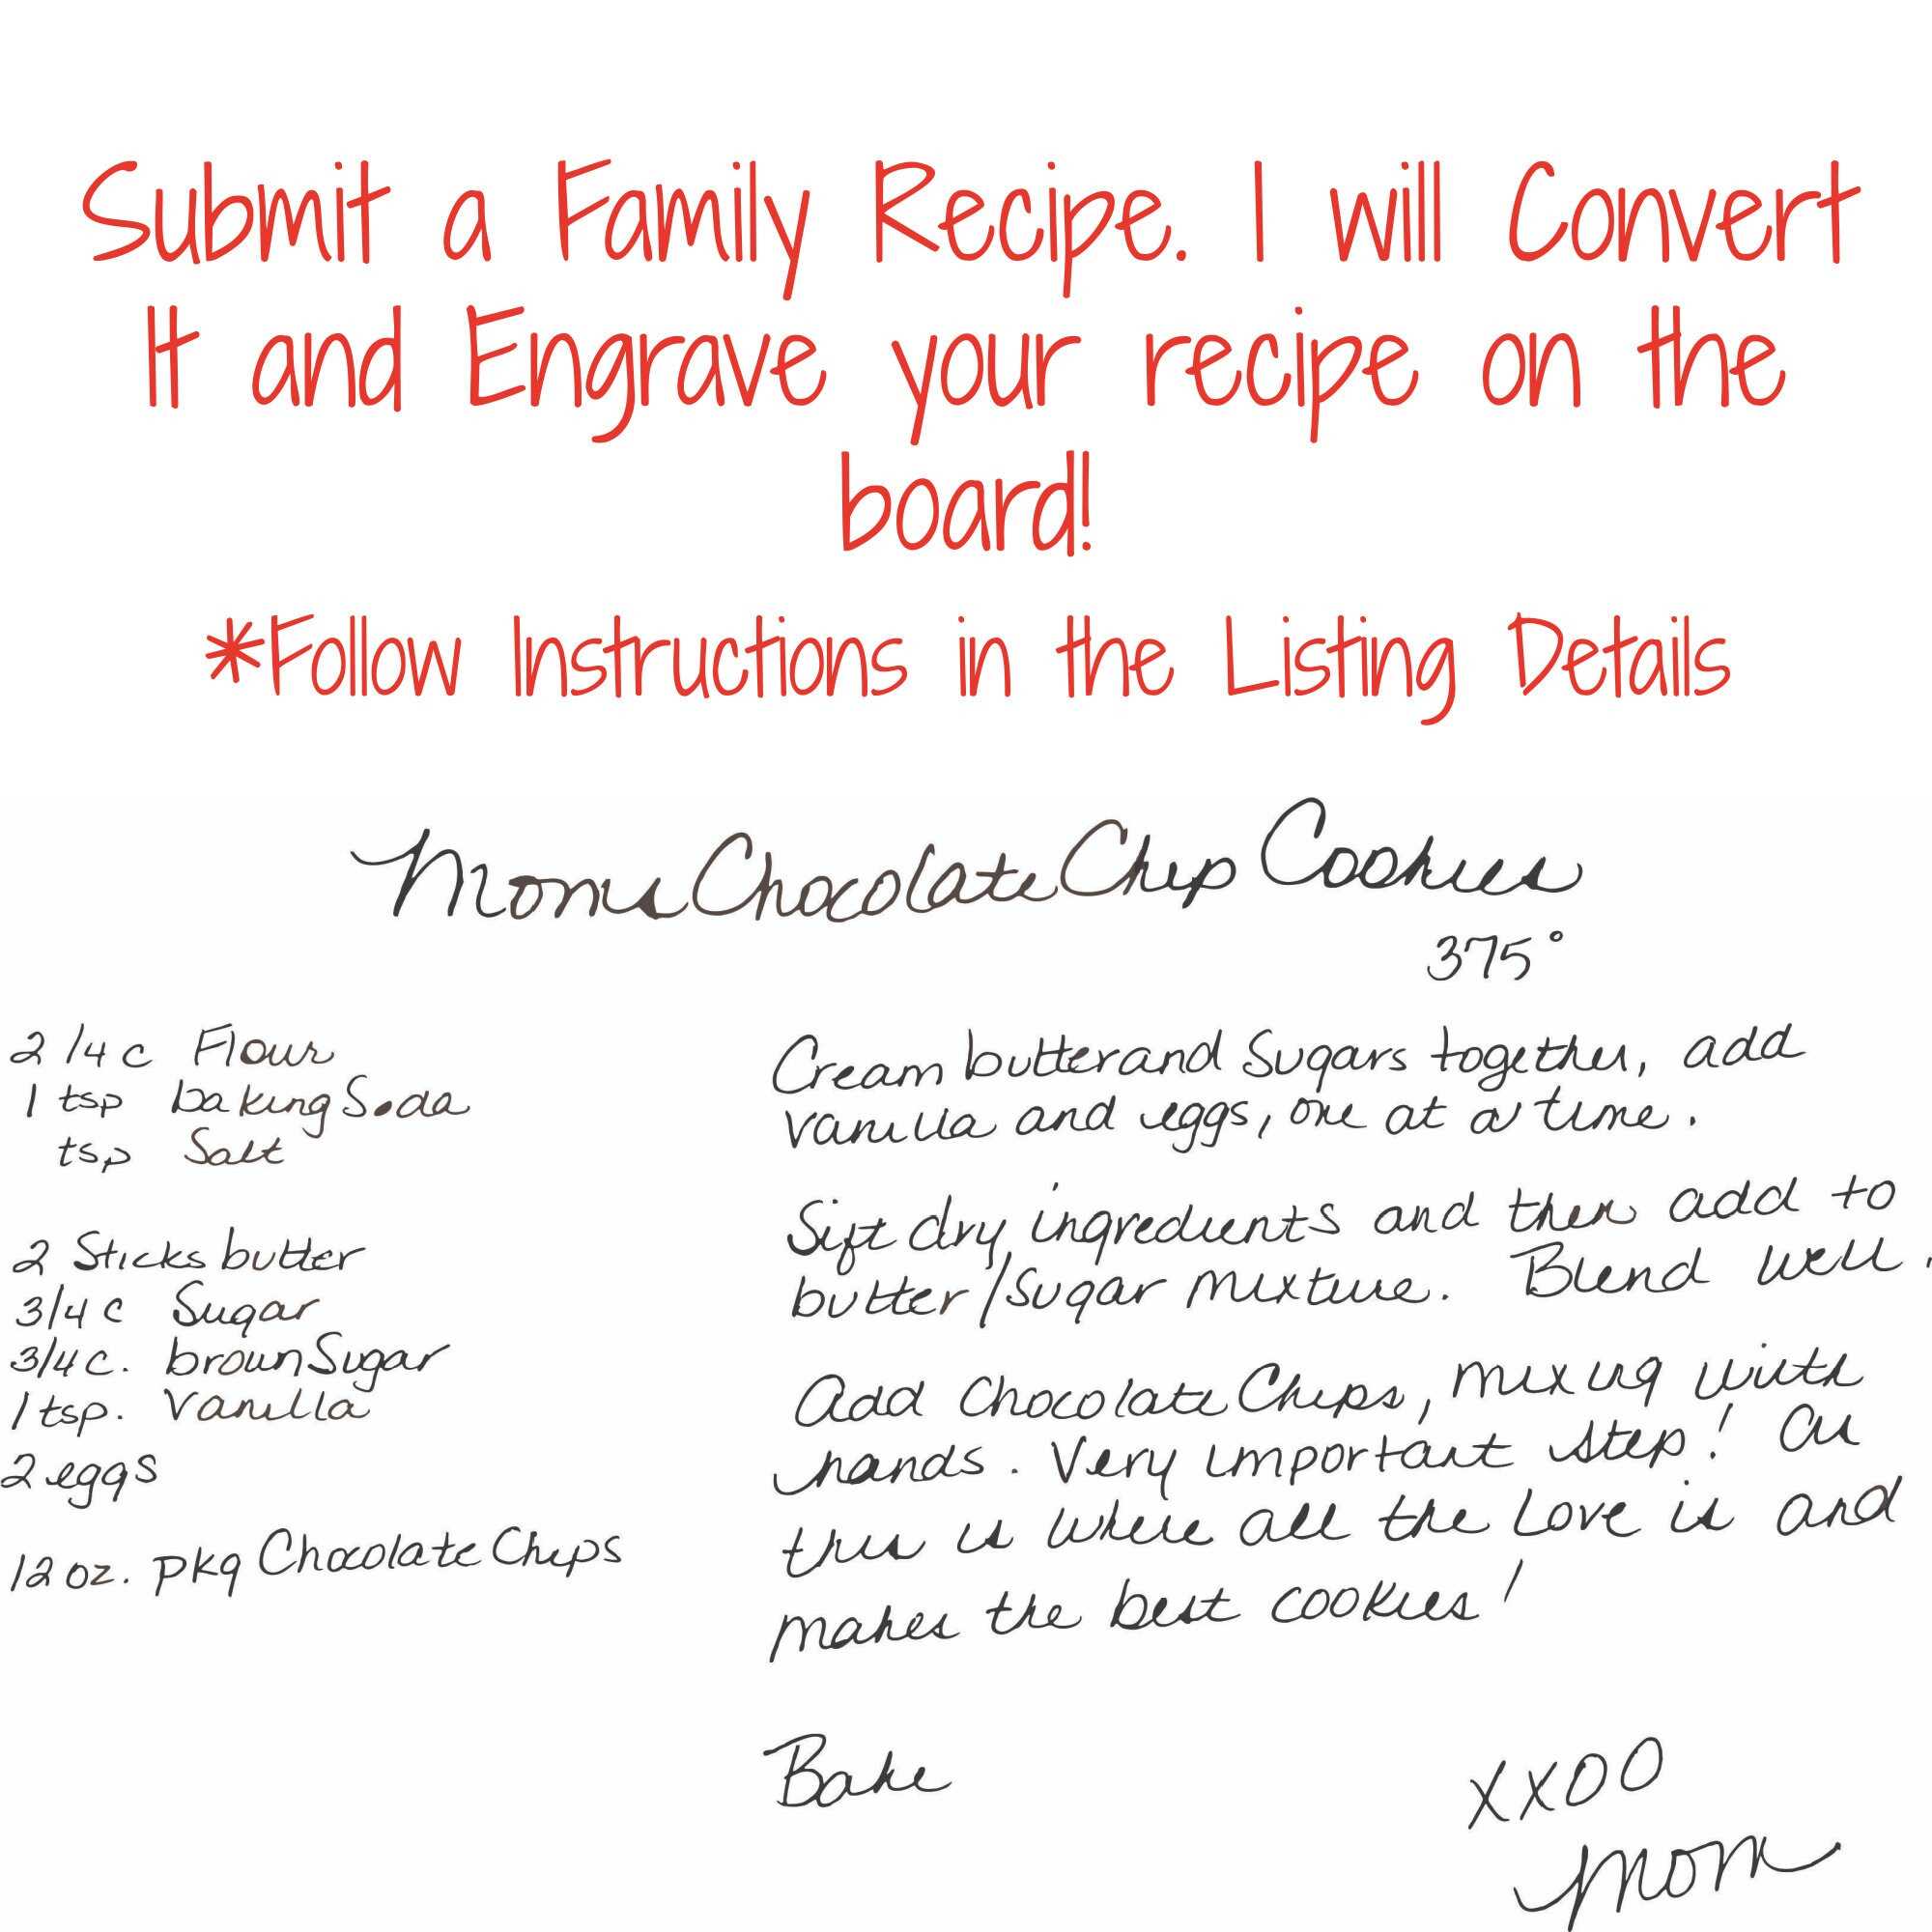 Submit a Family Recipe. I will Convert
It and Engrave your recipe on the
board!
*Follow Instructions in the Listing Details
Moms Chocolate Chip Cookies
375°
2 1/4 c Flour
1 tsp baking Soda
tsp Salt
2 Sticks butter
3/4 c Sugar
3/4 c. brown Sugar
1 tsp. Vanilla
2 eggs
12 oz. pkg Chocolate Chips
Cream butter and Sugars together, add
vanilla and eggs, one at a time.
Sift dry ingredients and then add to
butter/Sugar mixture. Blend well.
Add Chocolate Chips, mixing with
hands. Very important step! As
this is where all the Love is and
makes the best cookies!
Bake
XXOO
Mom